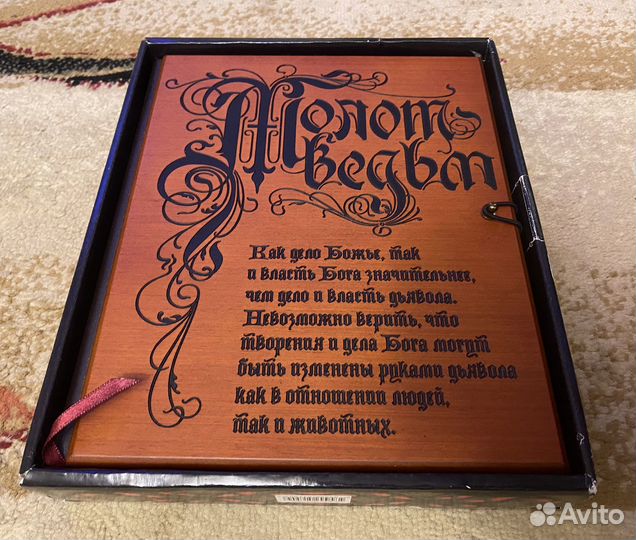 Молот
ведьм
Как дело Божье, так
и власть Бога значительнее,
чем дело и власть дьявола.
Невозможно верить, что
творения и дела Бога могут
быть изменены руками дьявола
как в отношении людей,
так и животных.
Avito